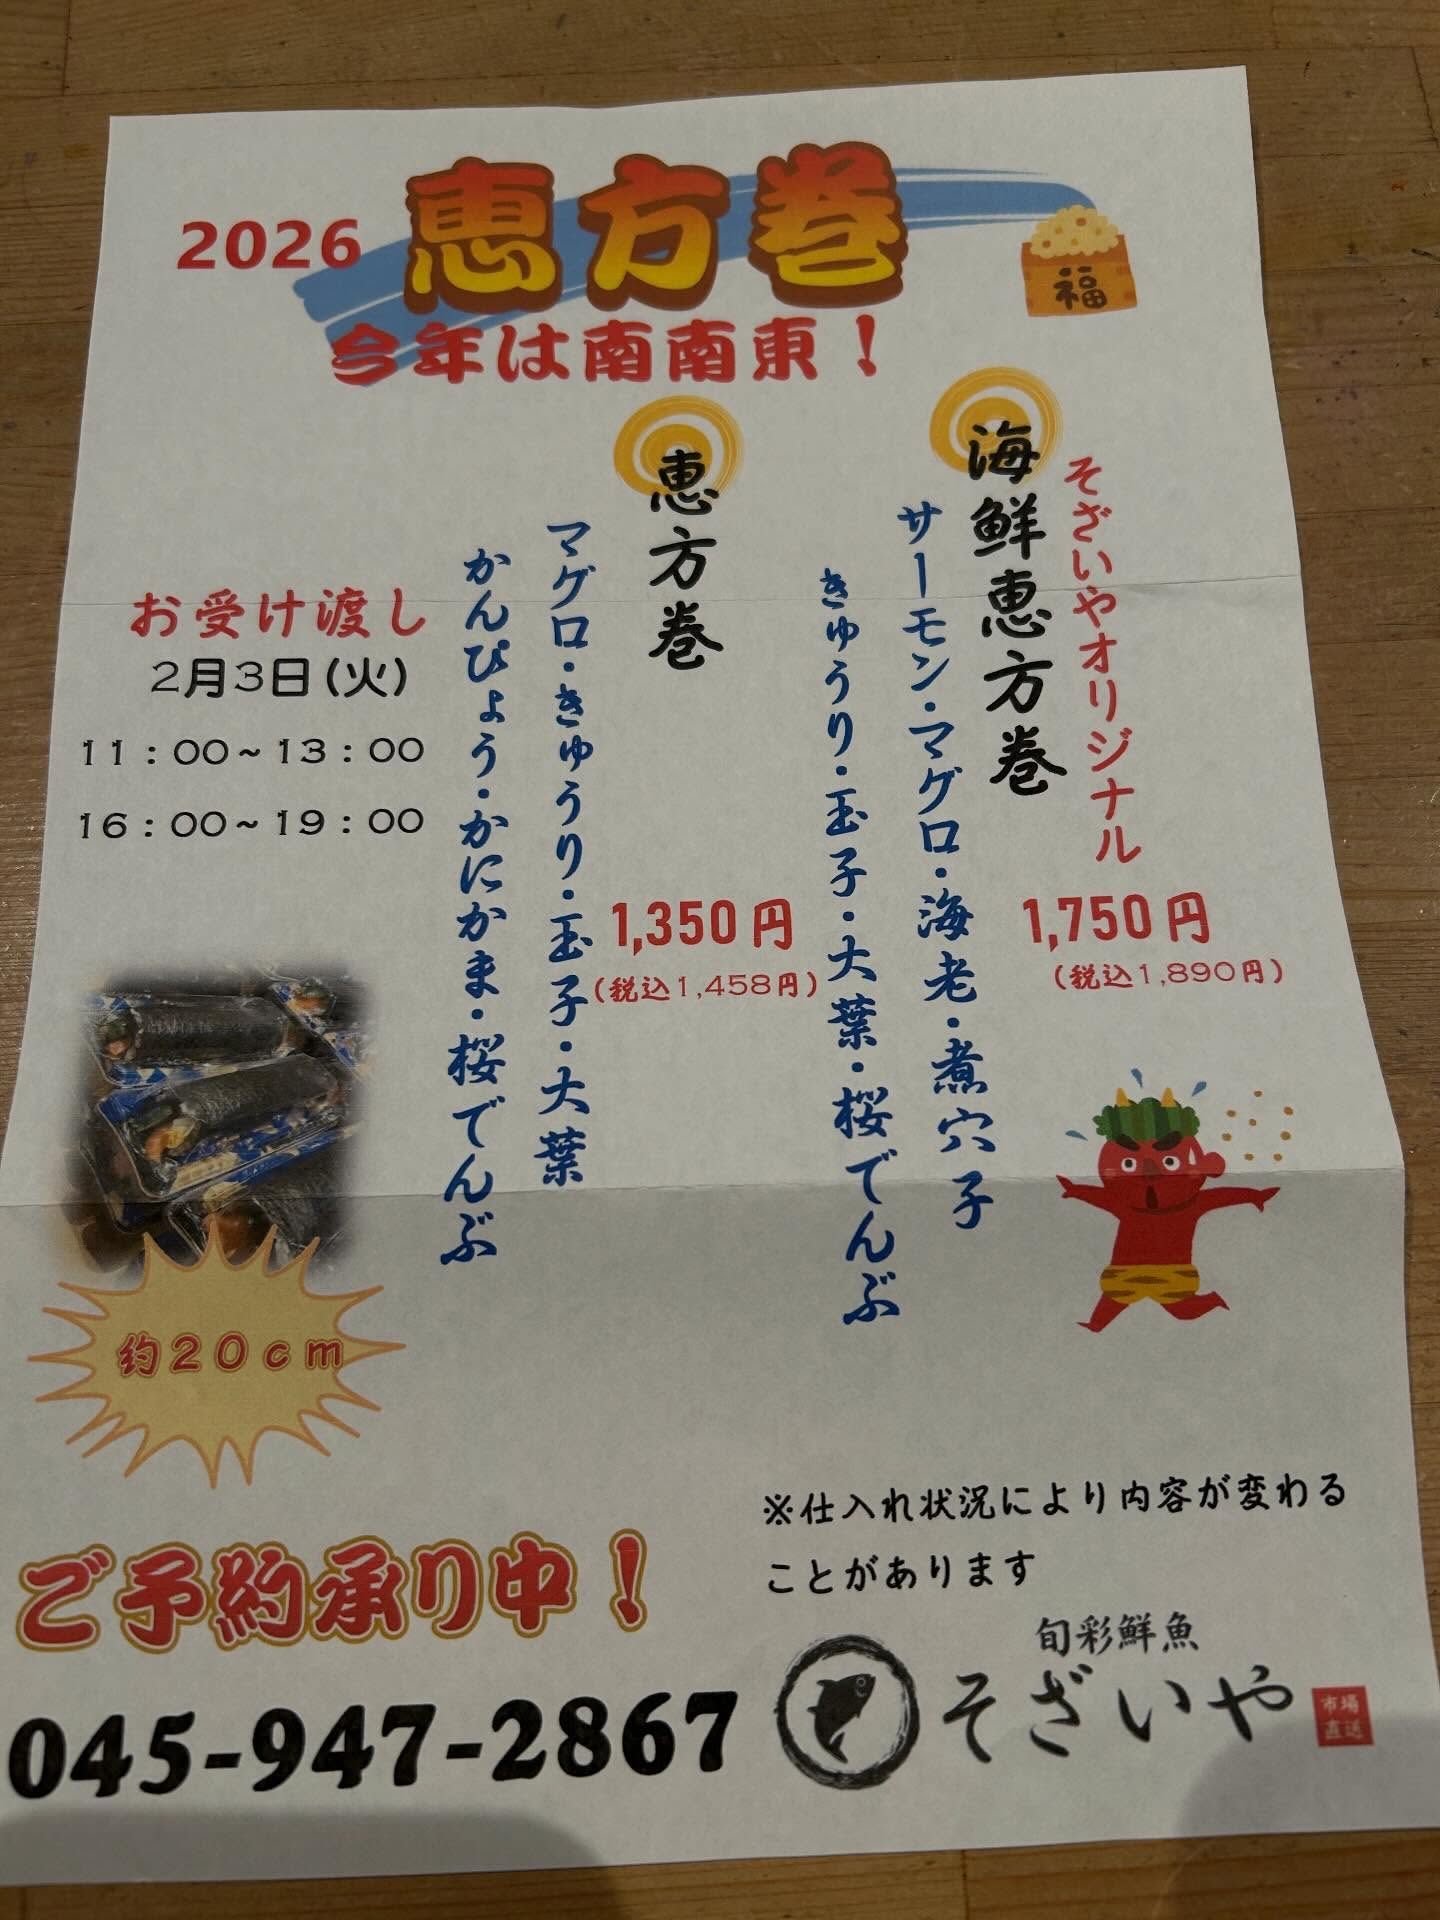 2026
恵方巻
今年は南南東!
福
そざいやオリジナル
海鮮恵方巻
サーモン・マグロ・海老・煮穴子
きゅうり・玉子・大葉・桜でんぶ
1,750円
(税込1,890円)
恵方巻
マグロ・きゅうり・玉子・大葉
かんぴょう・かにかま・桜でんぶ
1,350円
(税込1,458円)
お受け渡し
2月3日(火)
11:00~13:00
16:00~19:00
約20cm
※仕入れ状況により内容が変わる
ことがあります
ご予約承り中!
045-947-2867
旬彩鮮魚
そざいや
市場
直送